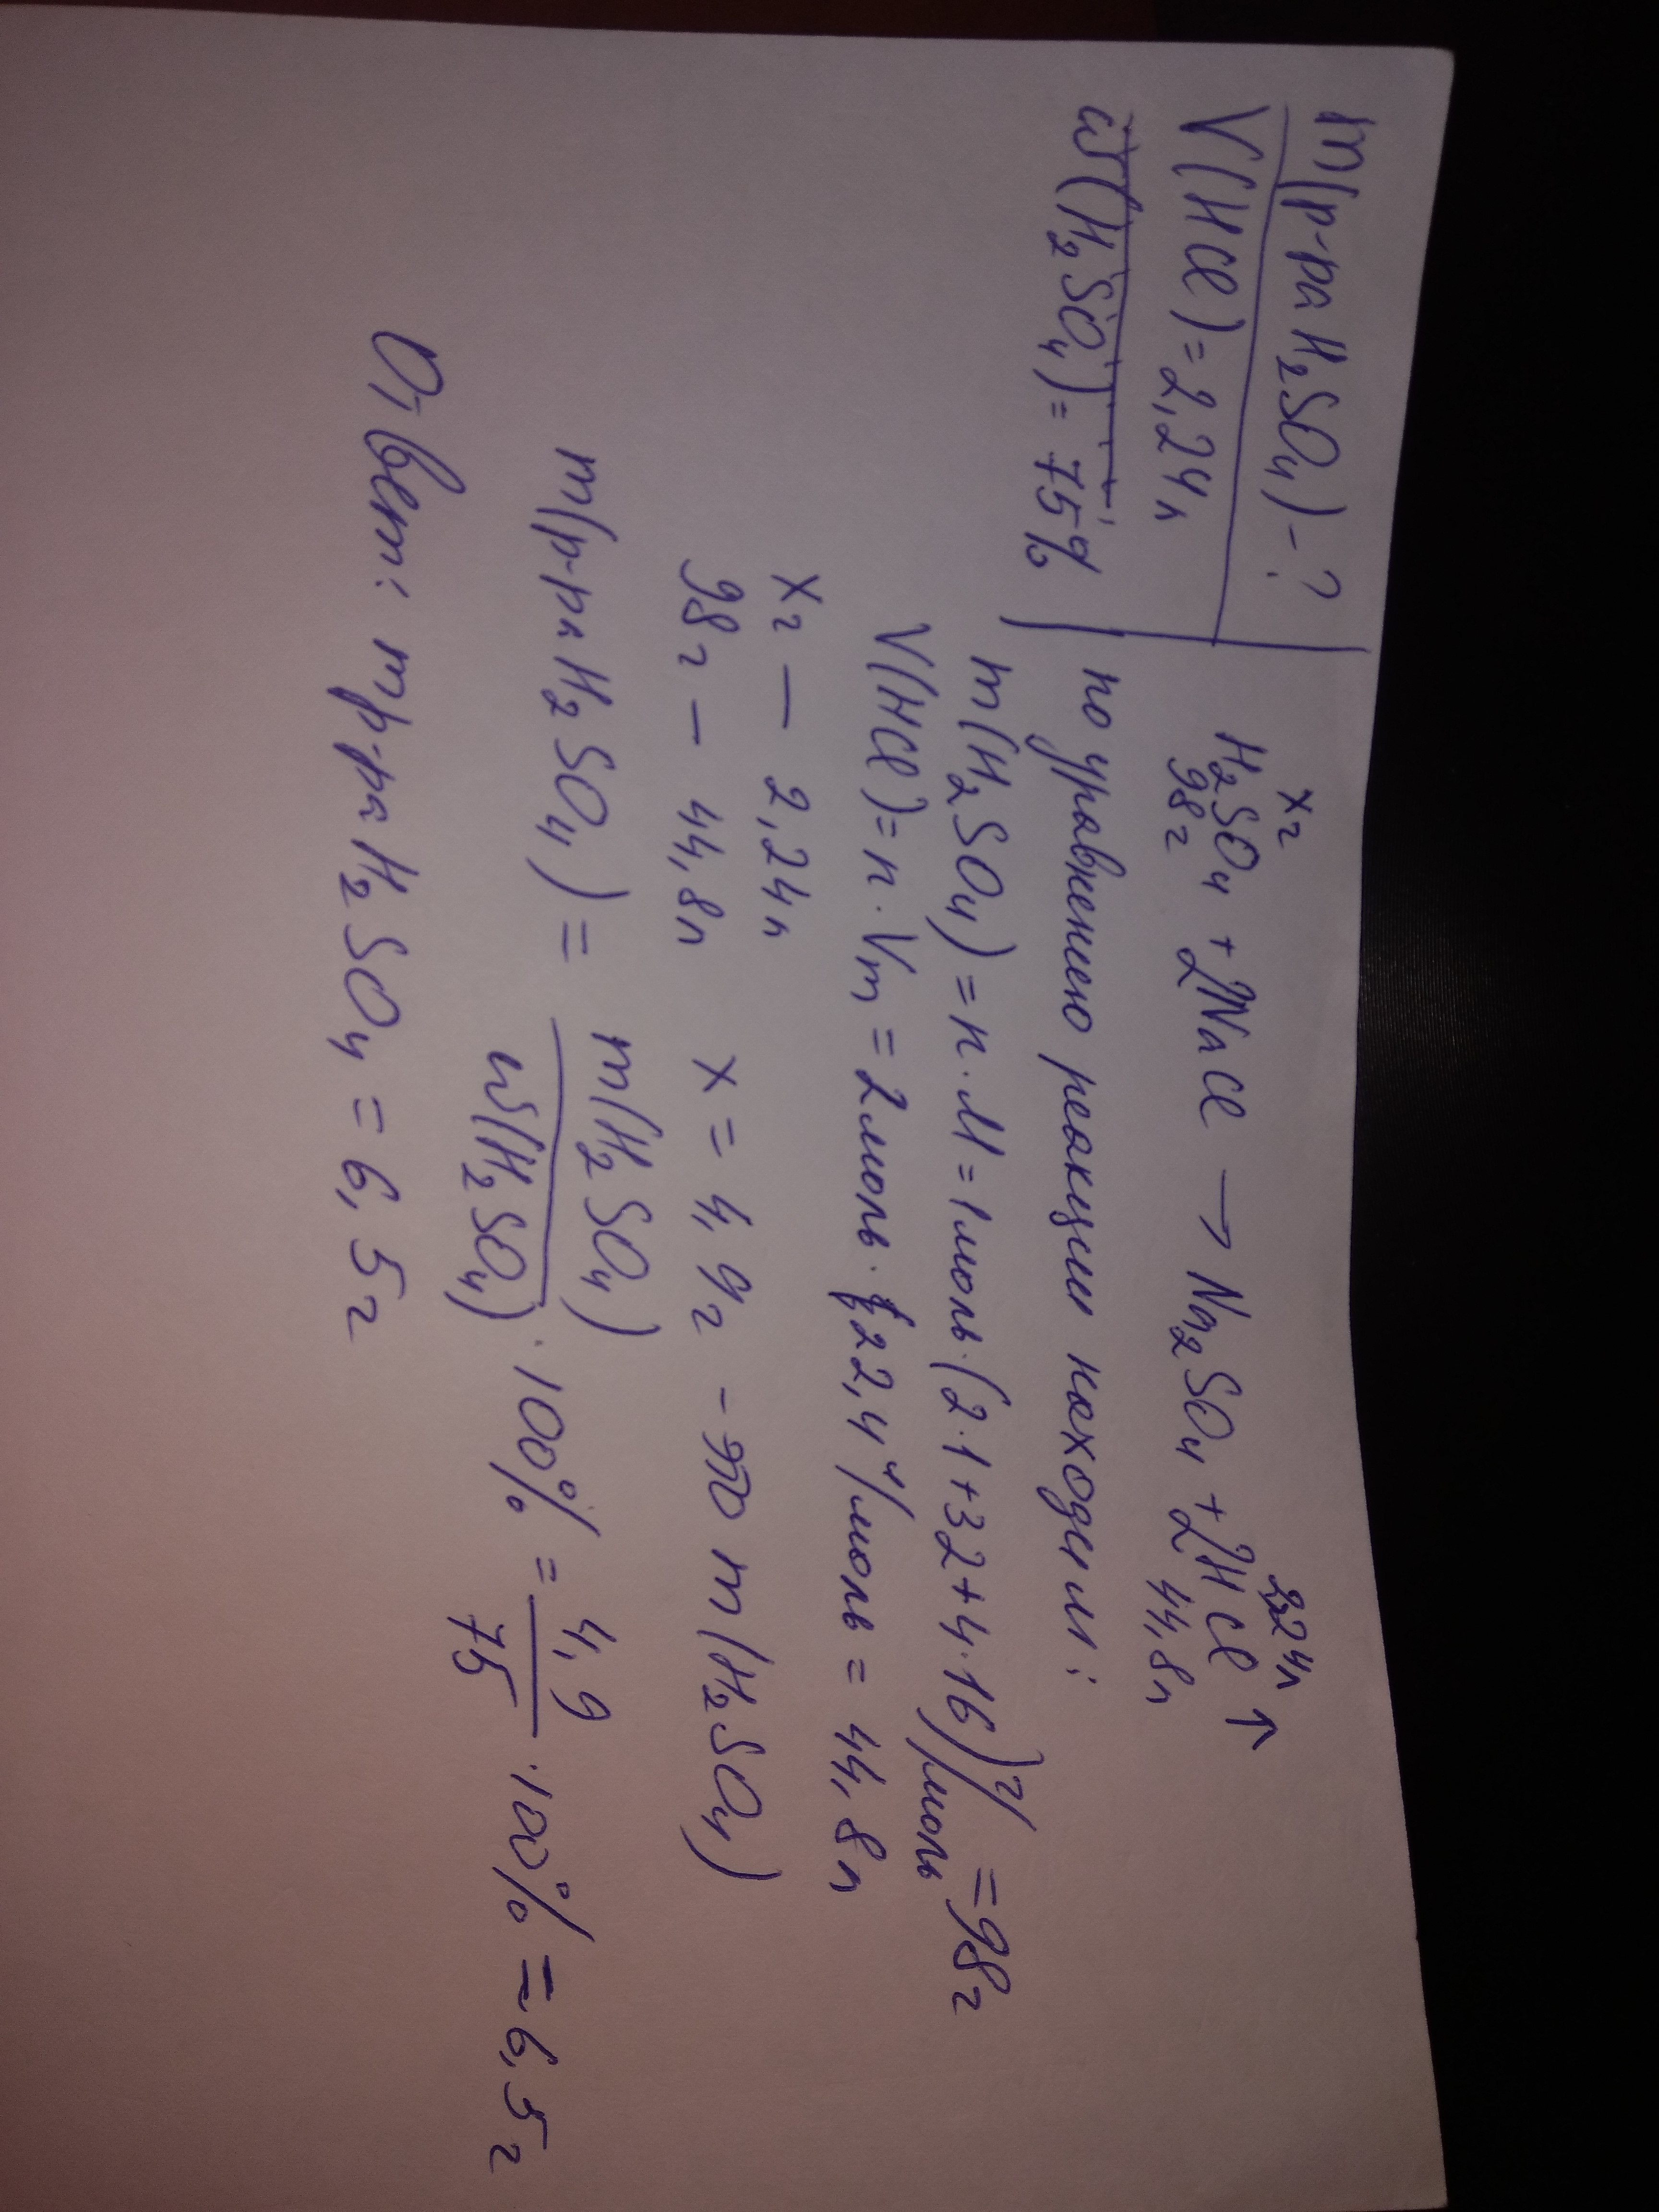 m(р-ра H₂SO₄) - ?
V(HCl) = 2,24л
w(H₂SO₄) = 75%
xг 2,24л
H₂SO₄ + 2NaCl → Na₂SO₄ + 2HCl ↑
98г 44,8л
по уравнению реакции находим:
m(H₂SO₄) = n · M = 1моль · (2·1+32+4·16) г/моль = 98г
V(HCl) = n · Vm = 2моль · 22,4 л/моль = 44,8л
xг — 2,24л
98г — 44,8л x = 4,9г - это m(H₂SO₄)
m(р-ра H₂SO₄) = m(H₂SO₄) / w(H₂SO₄) · 100% = 4,9 / 75 · 100% = 6,5г
Ответ: mр-ра H₂SO₄ = 6,5г